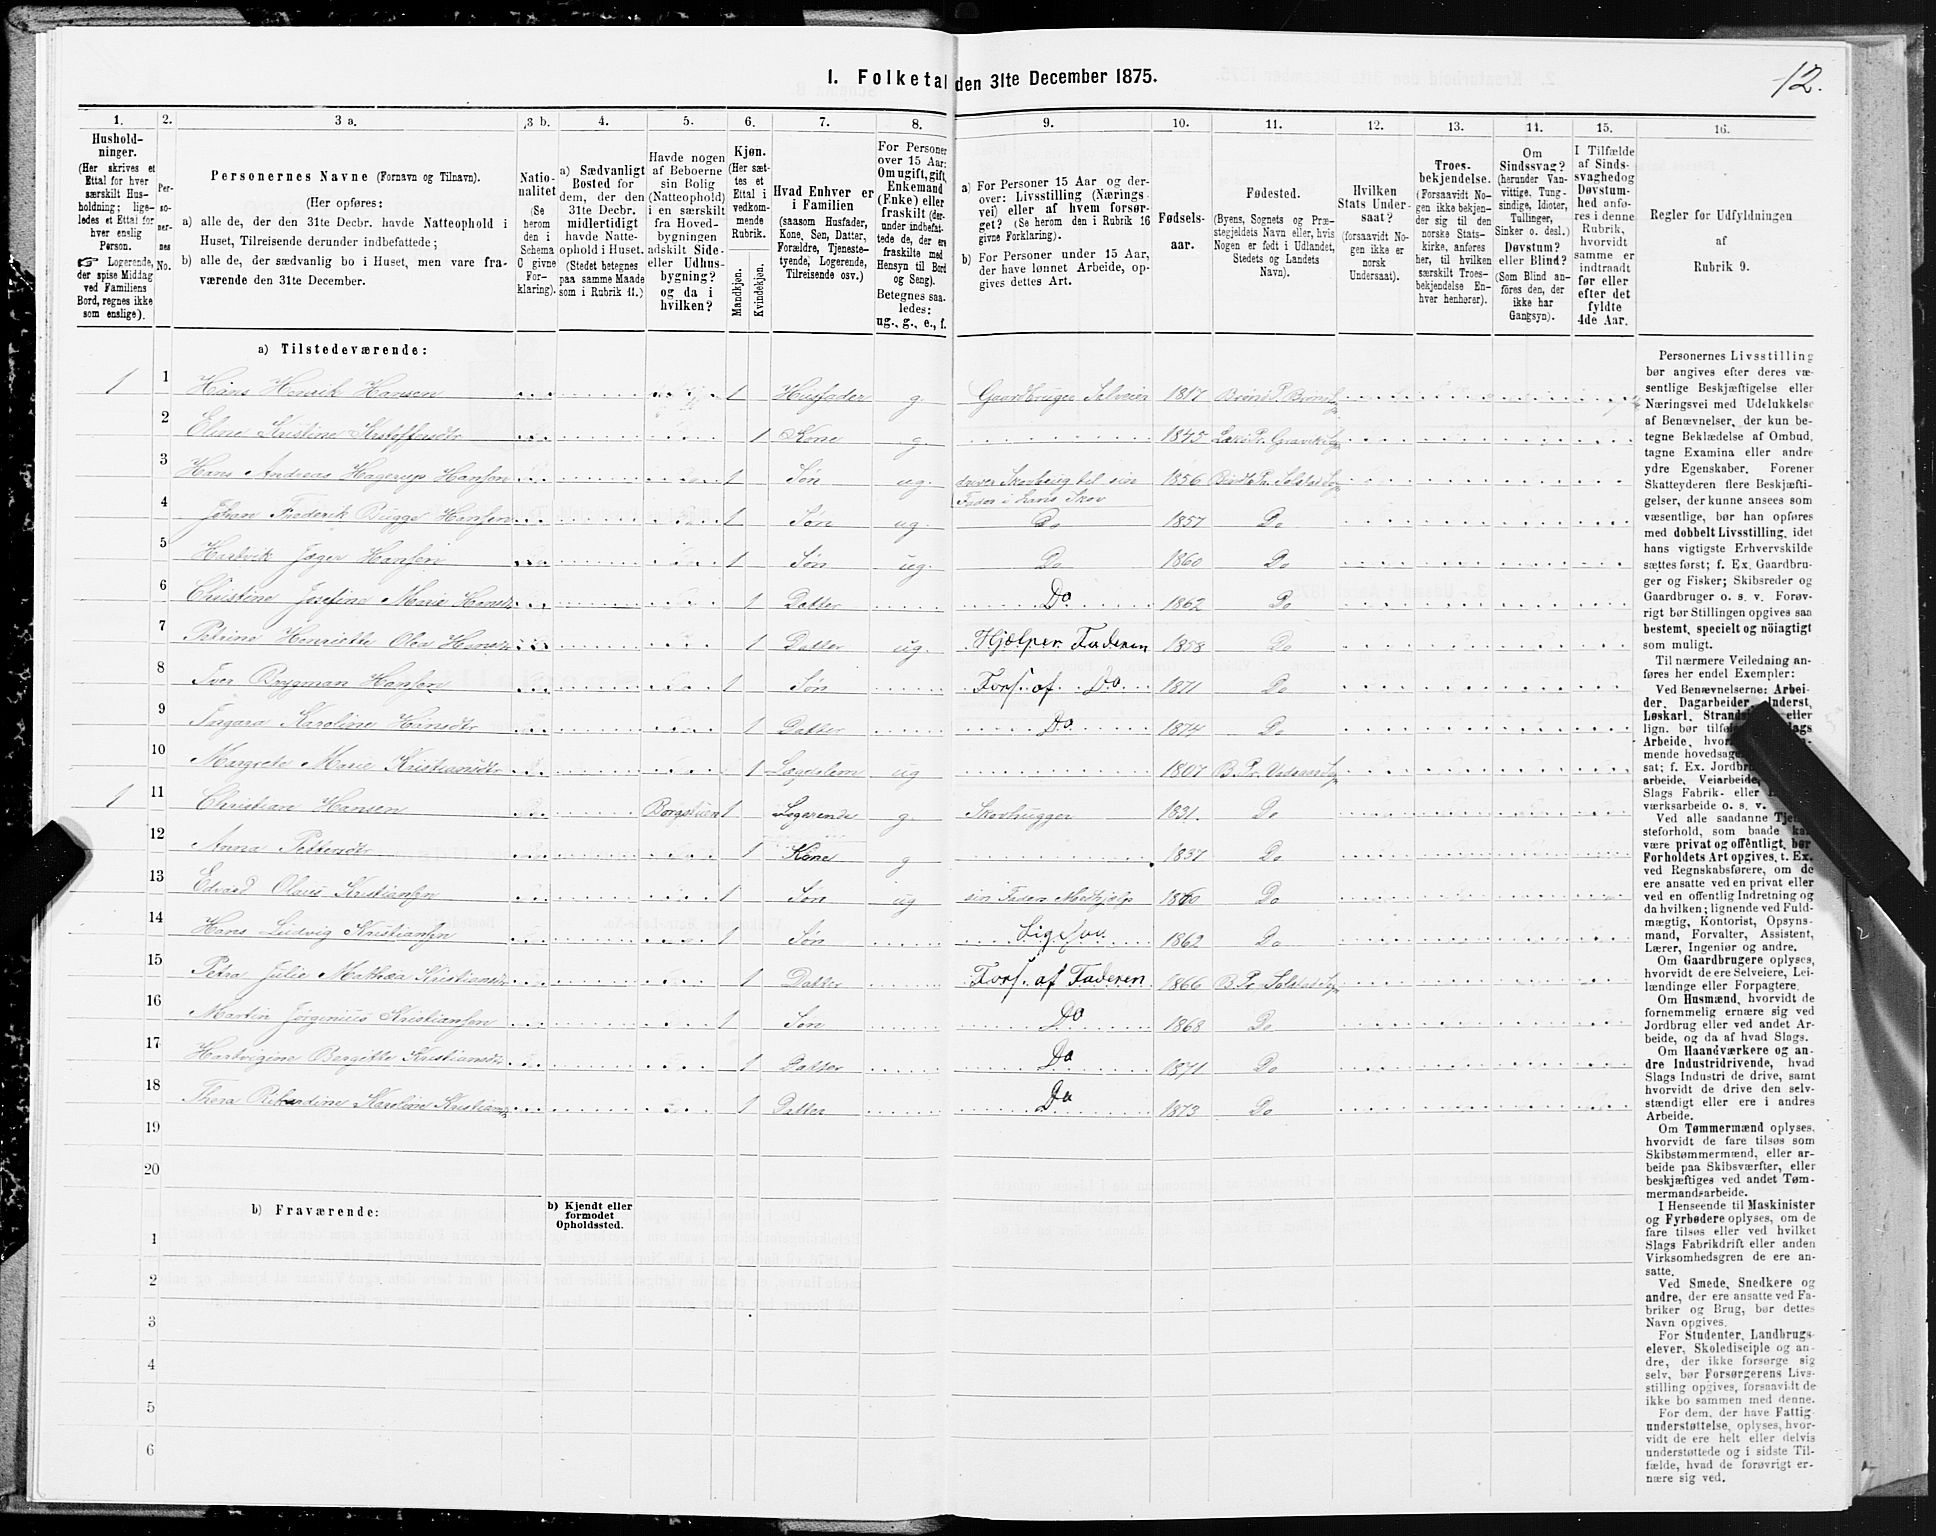 1. Folketal den 31te December 1875.
12.
1.
Hushold-
ninger.
(Her skrives et
Ettal for hver
særskilt Hus-
holdning; lige-
ledes et Ettal for
hver enslig
Person.
☞ Logerende,
der spise Middag
ved Familiens
Bord, regnes ikke
som enslige).
2.
Per-
so-
ner-
nes
No.
3 a.
Personernes Navne (Fornavn og Tilnavn).
(Her opføres:
a) alle de, der den 31te Decbr. havde Natteophold i
Huset, Tilreisende derunder indbefattede;
b) alle de, der sædvanlig bo i Huset, men vare fra-
værende den 31te December.
3 b.
Natio-
nalitet
(Se
herom
den i
Schema
9 givne
For-
klaring).
4.
a) Sædvanligt
Bosted for
dem, der den
31te Decbr.
midlertidigt
havde Natte-
ophold i Huset.
(Stedet betegnes
paa samme Maade
som i Rubrik 11.)
5.
Havde nogen
af Beboerne
sin Bolig
(Natteophold)
i en særskilt
fra Hoved-
bygningen
adskilt Side-
eller Udhus-
bygning?
og da i
hvilken?
6.
Kjøn.
(Her sæt-
tes et
Ettal i
vedkom-
mende
Rubrik.
Mandkjøn.
Kvindekjøn.
7.
Hvad Enhver er
i Familien
(saasom Husfader,
Kone, Søn, Datter,
Forældre, Tjeneste-
tyende, Logerende,
Tilreisende osv.)
8.
For Personer
over 15 Aar:
Om ugift, gift,
Enkemand
(Enke) eller
fraskilt (der-
under indbefat-
tede de, der ere
fraskilte med
Hensyn til Bord
og Seng).
Betegnes saa-
ledes:
ug., g., e., f.
9.
a) For Personer 15 Aar og der-
over: Livsstilling (Nærings-
vei) eller af hvem forsør-
get? (Se herom den i Rubrik 16
givne Forklaring).
b) For Personer under 15 Aar,
der have lønnet Arbeide, op-
gives dettes Art.
10.
Fødsels-
aar.
11.
Fødested.
(Byens, Sognets og Præ-
stegjeldets Navn eller, hvis
Nogen er født i Udlandet,
Stedets og Landets
Navn).
12.
Hvilken
Stats Under-
saat?
(forsaavidt No-
gen ikke er
norsk
Undersaat).
13.
Troes-
bekjendelse.
(Forsaavidt No-
gen ikke bekjen-
der sig til den
norske Stats-
kirke, anføres
her, til hvilken
særskilt Troes-
bekjendelse En-
hver henhører).
14.
Om
Sindssvag?
(herunder Van-
vittige, Tung-
sindige, Idioter,
Tullinger,
Sinker o. desl.)
Døvstum?
eller Blind?
(Som Blind an-
føres den, der
ikke har
Gangsyn).
15.
I Tilfælde
af Sinds-
svaghed og
Døvstum-
hed anfø-
res i denne
Rubrik,
hvorvidt
samme er
indtraadt
før eller
efter det
fyldte
4de Aar.
16.
Regler for Udfyldningen
af
Rubrik 9.
a) Tilstedeværende:
1 1 Hans Henrik Hansen 1 Husfader g. Gaardbruger Selveier 1817
2 Eline Kristine 1 Kone g. 1845
3 Hans Andreas Hagerup Hansen 1 Søn ug. driver til sin 1856
Fader i hans Skov
4 Johan Frederik Bugge Hansen 1 Søn ug. Do 1857 Do
5 Hartvik Jæger Hansen 1 Søn ug. Do 1860 Do
6 Christine Josefine Marie 1 Datter Do 1862 Do
7 Petrine Henriette 1 Datter ug. Hjælper Faderen 1858 Do
8 Iver Hansen 1 Søn Fors. af Do 1871 Do
9 Karoline Hansdtr 1 Datter Do 1874 Do
10 Margrete Marie Kristiansdtr 1 Lægdslem ug 1807
1 11 Christian Hansen Borgstuen 1 Logerende g. Skovhugger 1831. Do
12 Anna Pettersdtr 1 Kone g 1837 Do
13 Edvard Olaus Kristiansen 1 Søn ug sin Fader Medhjælp 1860 Do
14 Hans Ludvig Kristiansen 1 Søn Lig. Sov. 1862 Do
15 Petra Julie Mathea Kristiansdtr 1 Datter Fors. af Faderen 1866
16 Martin Jørginius Kristiansen 1 Søn Do 1868 Do
17 Hartvigine Bergitte Kristiansdtr 1 Datter Do 1871 Do
18 Thera Karoline 1 Datter Do 1873 Do
19
20
b) Fraværende:
b) Kjendt eller
formodet
Opholdssted.
1
2
3
4
5
6
Personernes Livsstilling
bør angives efter deres væ-
sentlige Beskjæftigelse eller
Næringsvei med Udelukkelse
af Benævnelser, der kun be-
tegne Beklædelse af Ombud,
tagne Examina eller andre
ydre Egenskaber. Forener
Skatteyderen flere Beskjæfti-
gelser, der kunne ansees som
væsentlige, bør han opføres
med dobbelt Livsstilling, idet
hans vigtigste Erhvervskilde
sættes først; f. Ex. Gaardbru-
ger og Fisker; Skibsreder og
Gaardbruger o. s. v. Forøv-
rigt bør Stillingen opgives saa
bestemt, specielt og nöiagtigt
som muligt.
Til nærmere Veiledning an-
føres her endel Exempler:
Ved Benævnelserne: Arbei-
der, Dagarbeider, Inderst,
Løskarl, eller
lign. bør
Arbeide,
mende
sat; f. Ex.
arbeide, Veiarbeide,
Slags Fabrik- eller
værksarbeide o. s. v.
Ved alle saadanne
steforhold, som baade
være privat og offentligt, bør
Forholdets Art opgives, t. Ex.
ved Regnskabsførere, om de
ere ansatte ved en privat eller
ved en offentlig Indretning og
da hvilken; lignende ved Fuld-
mægtig, Kontorist, Opsyns-
mand, Forvalter, Assistent,
Lærer, Ingeniør og andre.
Om Gaardbrugere oplyses,
hvorvidt de ere Selveiere, Lei-
lændinge eller Forpagtere.
Om Husmænd, hvorvidt de
fornemmelig ernære sig ved
Jordbrug eller ved andet Ar-
beide, og da af hvad Slags.
Om Haandværkere og an-
dre Industridrivende, hvad
Slags Industri de drive, samt
hvorvidt de drive den selv-
stændigt eller ere i andres
Arbeide.
Om Tømmermænd oplyses,
hvorvidt de fare tilsøs som
Skibstømmermænd, eller ar-
beide paa Skibsværfter, eller
beskjæftiges ved andet Tøm-
mermandsarbeide.
I Henseende til Maskinister
og Fyrbødere oplyses, om de
fare tilsøs eller ved hvilket
Slags Fabrikdrift eller anden
Virksomhedsgren de ere an-
satte.
Ved Smede, Snedkere og
andre, der ere ansatte ved Fa-
briker og Brug, bør dettes
Navn opgives.
For Studenter, Landbrugs-
elever, Skoledisciple og an-
dre, der ikke forsørge sig
selv, bør Forsørgerens Livs-
stilling opgives, forsaavidt de
ikke bo sammen med denne.
For dem, der have Fattig-
understøttelse, oplyses, hvor-
vidt de ere helt eller delvis
understøttede og i sidste Til-
fælde, hvad de forøvrigt er-
nære sig ved.